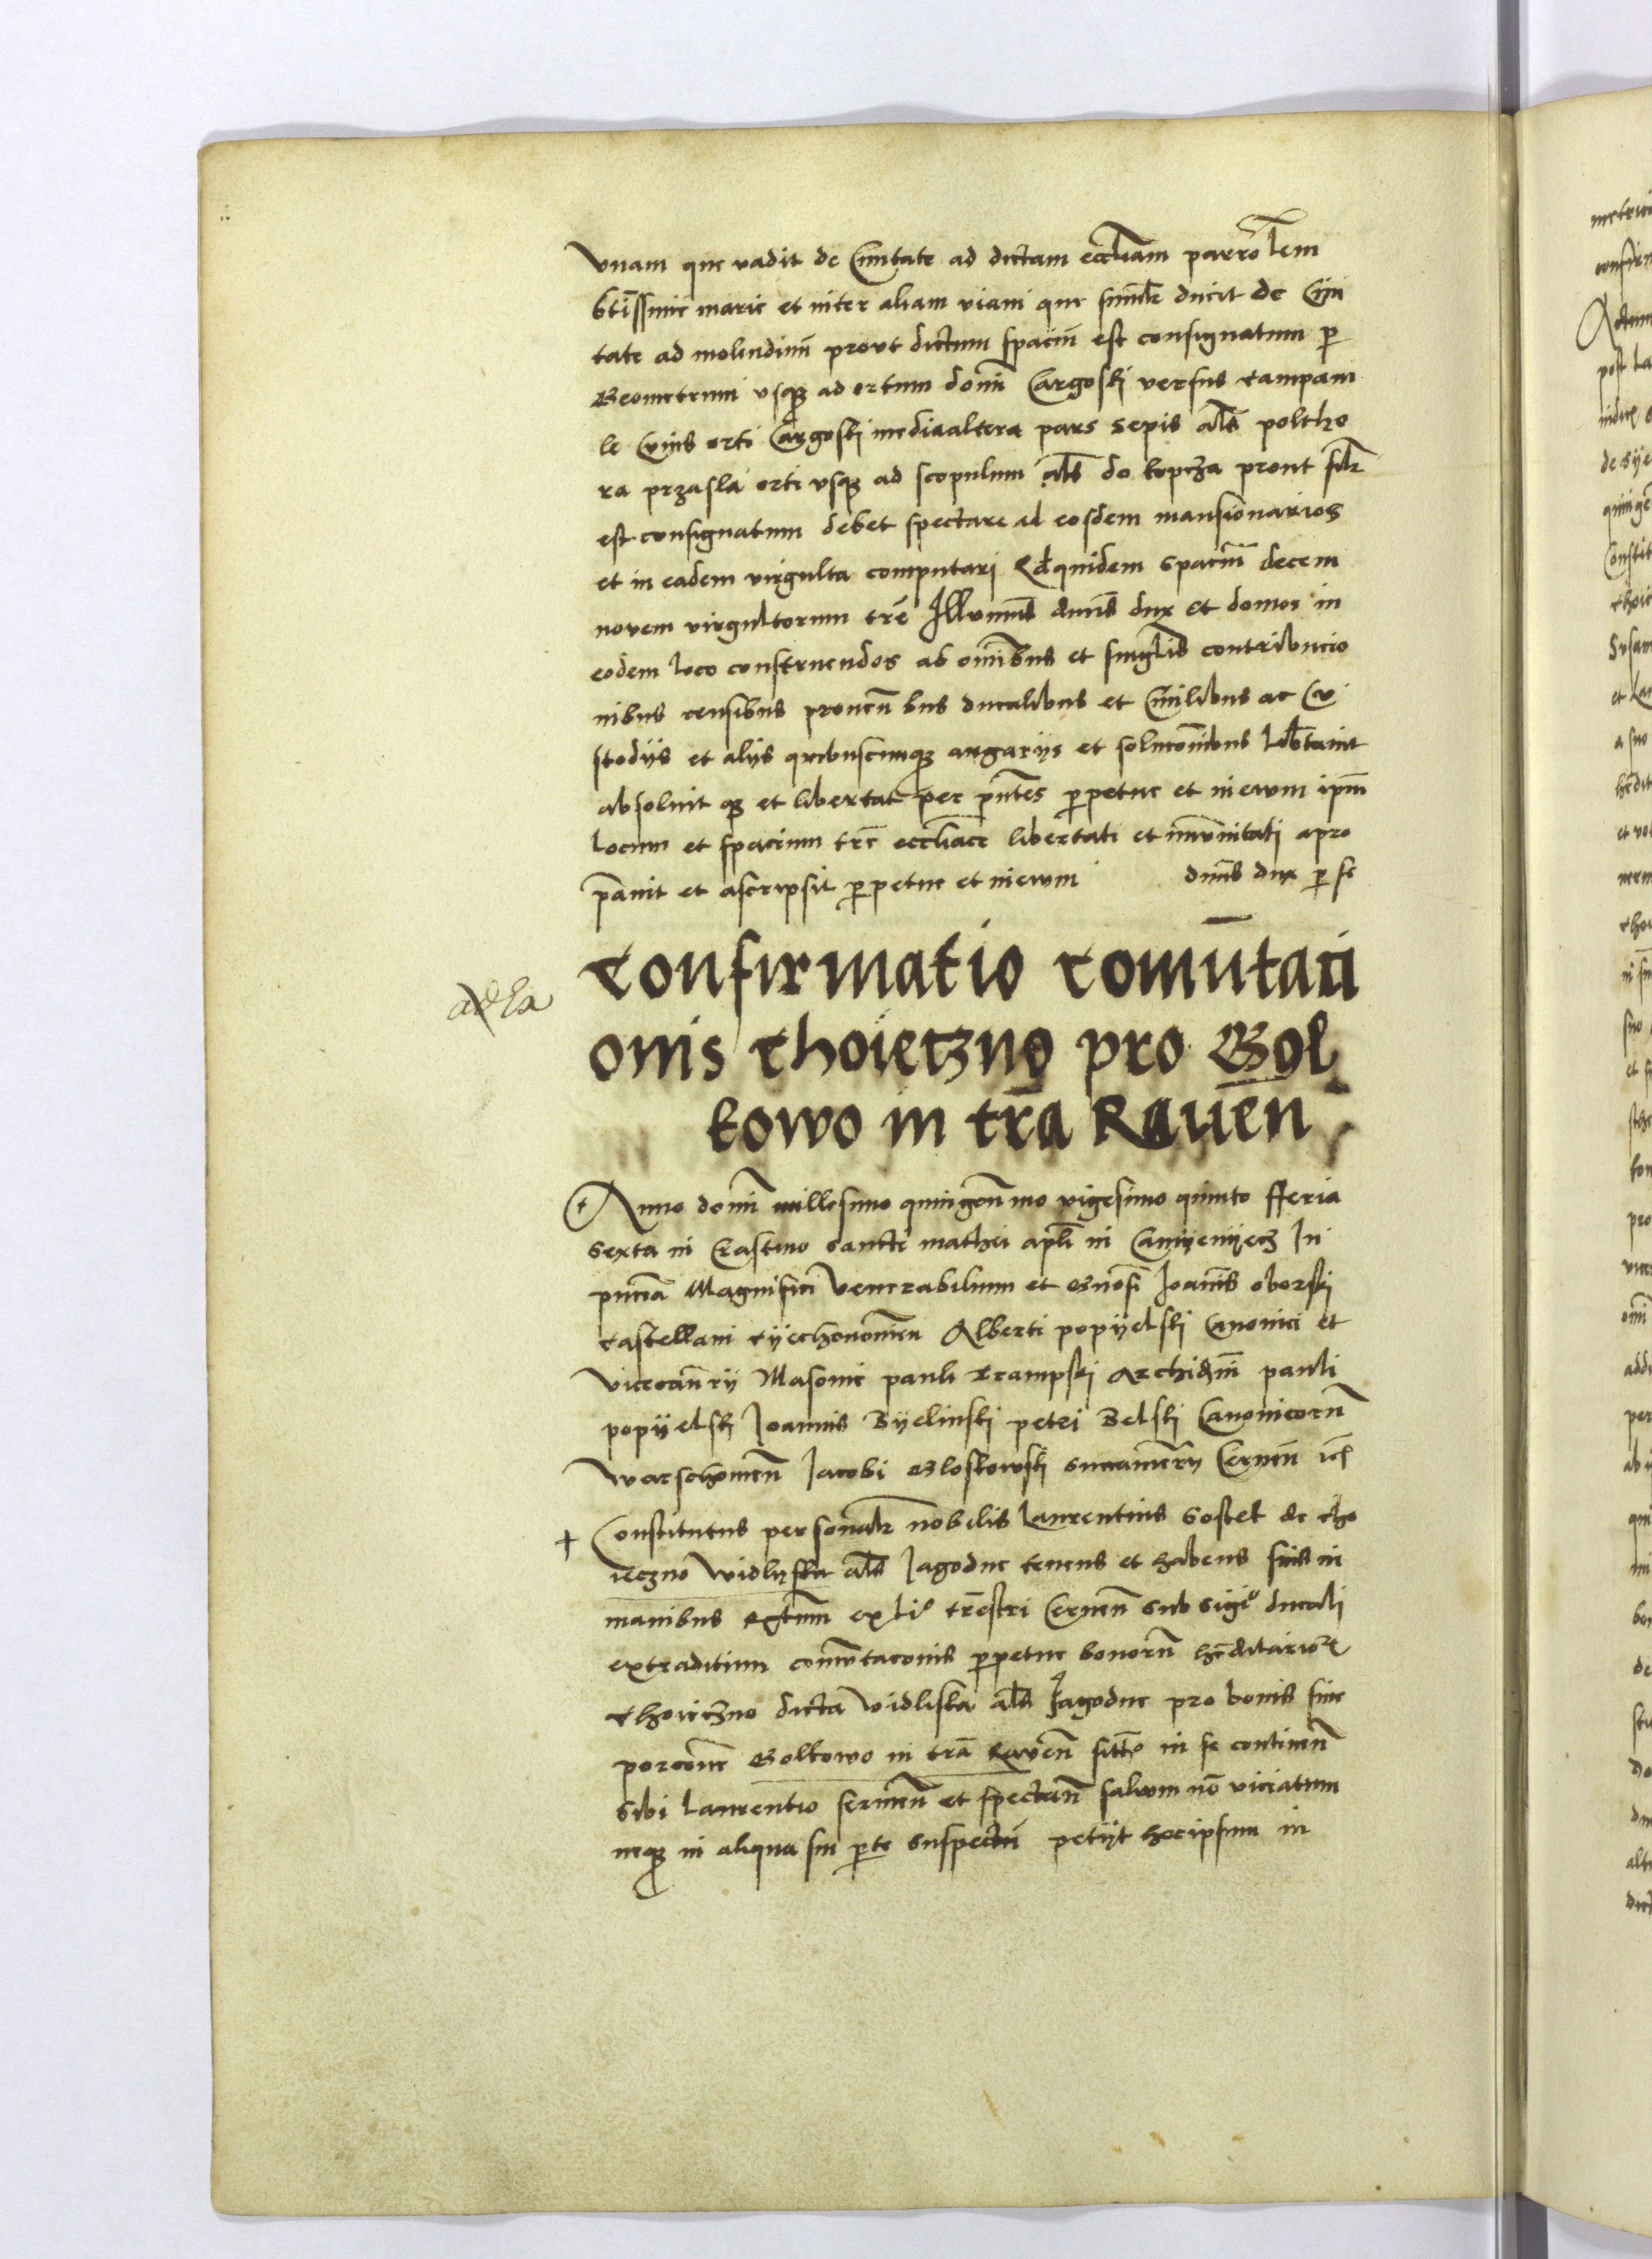 vnam que vadit de Ciuitate ad dictam eccliam parrolem
btissime marie et inter aliam viam que similr ducit de Ciui
tate ad molendinu prout dictum spaciu est consignatum p
Geometrum vsqz ad ortum domi Cargoski versus campam
le Cuius orti Cargoski mediaaltera pars sepis als poltho
ra przasla orti vsqz ad scopulum als do kopcza prout silr
est consignatum debet spectare ad eosdem mansionarios
et in eadem virgulta computari Qdquidem spaciu decem
novem virgultorum tre Illumus dnus dux et domos in
eodem loco construendos ab omibus et singlis contribucio
nibus censibus prouen bus ducalibus et Ciuilibus ac Cu
stodijs et alijs quibuscumqz angarijs et solucoibus libtauit
absoluit qz et libertat per pntes ppetue et in ewm ipm
locum et spacium tre eccliace libertati et imunitati apro
pauit et ascripsit ppetue et in ewm dnus dux p se
Confirmatio comutaci
onis choieczno pro Gol
kowo in tra Rauen
ad Ea
Anno domi millesimo quingenmo vigesimo quinto fferia
sexta in Crastino sancti mathei apli in Camyenyecz In
pncia Magnifici Venerabilium et Gnosi Joanis oborski
castellani cyechonomien Alberti popyelski Canonici et
vicecanrij Masouie pauli krampski Archidni pauli
popyelski Joannis Byelinski petri Belski Canonicoru
Warschouien Jacobi Gloskowski succamerry Cernen ic
+ Constitutus personalr nobilis Laurentius Sostek de cho
ieczno widliska als Jagodne tenens et habens suis in
manibus Rgtum ex li trestri Cernen sub sigio ducali
extraditum comutacois ppetue bonoru hditarior
choieczno dicta vidliska als Jagodne pro bonis siue
porcone Golkowo in tra Raven sitt in se continen
sibi Laurentio seruien et spectan saluum no viciatum
neqz in aliqua sui pte suspectu petijt hocipsum in